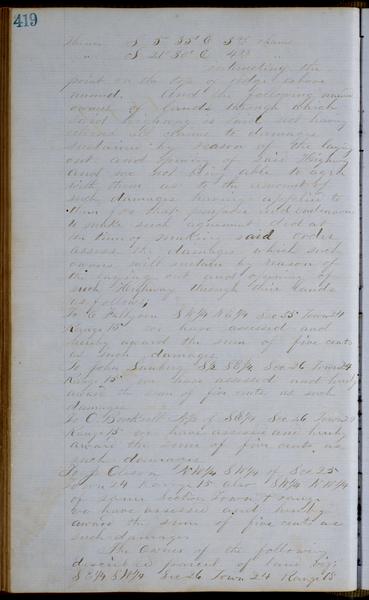 419
Thence S 5° 35' E chains
" S 21° 30' E
intersecting the
point on the top of ridge above
named. And the following named
owners of lands through which
said highway is laid not having
claims to damages
sustained by reason of the laying
out and opening of said Highway
and we not being able to agree
with them as to the amount of
such damages having applied to
them for that purpose and
to make such agreement did at
the time of making said order
assess the damages which such
owners will sustain by reason of
the laying out and opening of
such Highway through their lands
as follows,
To Sec 35 Town 24
Range 15 we have assessed and
hereby award the sum of five cents
as such damages
To John Sec 26 Town 24
Range 15 we have assessed and hereby
award the sum of five cents as such
damages
To C. of SE¼ Sec 26 Town 24
Range 15 we have assessed and hereby
award the sum of five cents as
such damages
To J. NW¼ SW¼ of Sec 25
Town 24 Range 15 also SW¼ NW¼
of same Section Town & range
we have assessed and hereby
award the sum of five cents as
such damages
The Owner of the following
described parcel of land viz;
SW¼ Sec 26 Town 24 Range 15